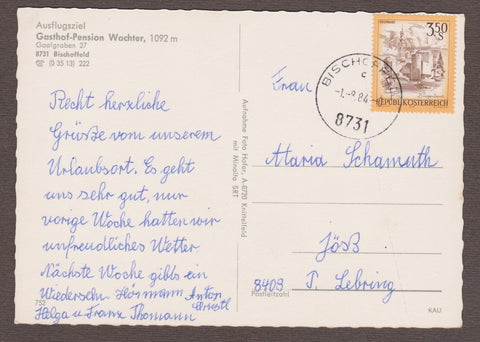 Ausflugsziel
Gasthof-Pension Wachter, 1092 m
Gaalgraben 27
8731 Bischoffeld
☎ (0 35 13) 222
Recht herzliche
Grüße vom unserem
Urlaubsort. Es geht
uns sehr gut, nur
vorige Woche hatten wir
unfreundliches Wetter
Nächste Woche gibts ein
Wiedersehn. Hörmann Anton
Christl
Helga u. Franz Thomann
752
Aufnahme Foto Hofer, A-8720 Knittelfeld
mit Minolta SRT
3.50
S
REPUBLIK ÖSTERREICH
BISCHOFFELD
c
8731
Frau
Maria Schamuth
Jöß
8403 P. Lebring
Postleitzahl
KAU